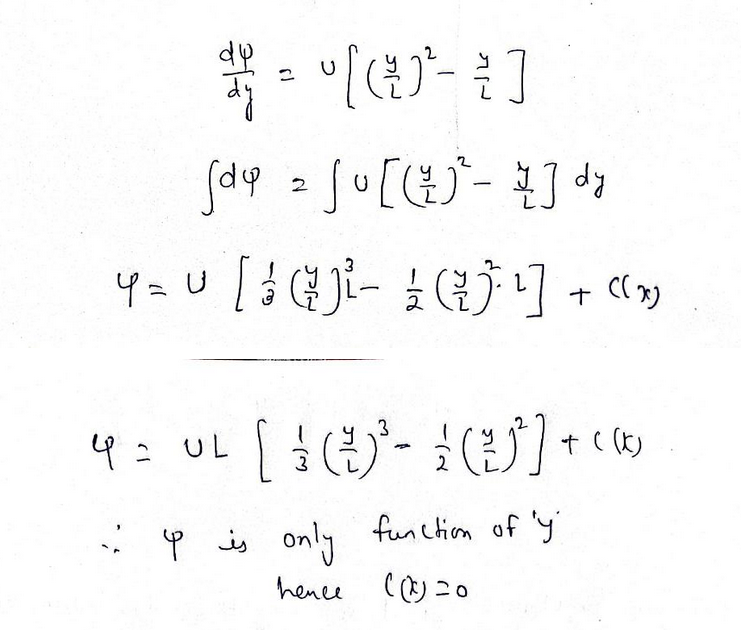 dψ/dy = U[(y/L)² - y/L]
∫dψ = ∫U[(y/L)² - y/L] dy
ψ = U [1/3 (y/L)³ L - 1/2 (y/L)² · L] + C(x)
ψ = UL [1/3 (y/L)³ - 1/2 (y/L)²] + C(x)
∴ ψ is only function of 'y'
hence C(x) = 0